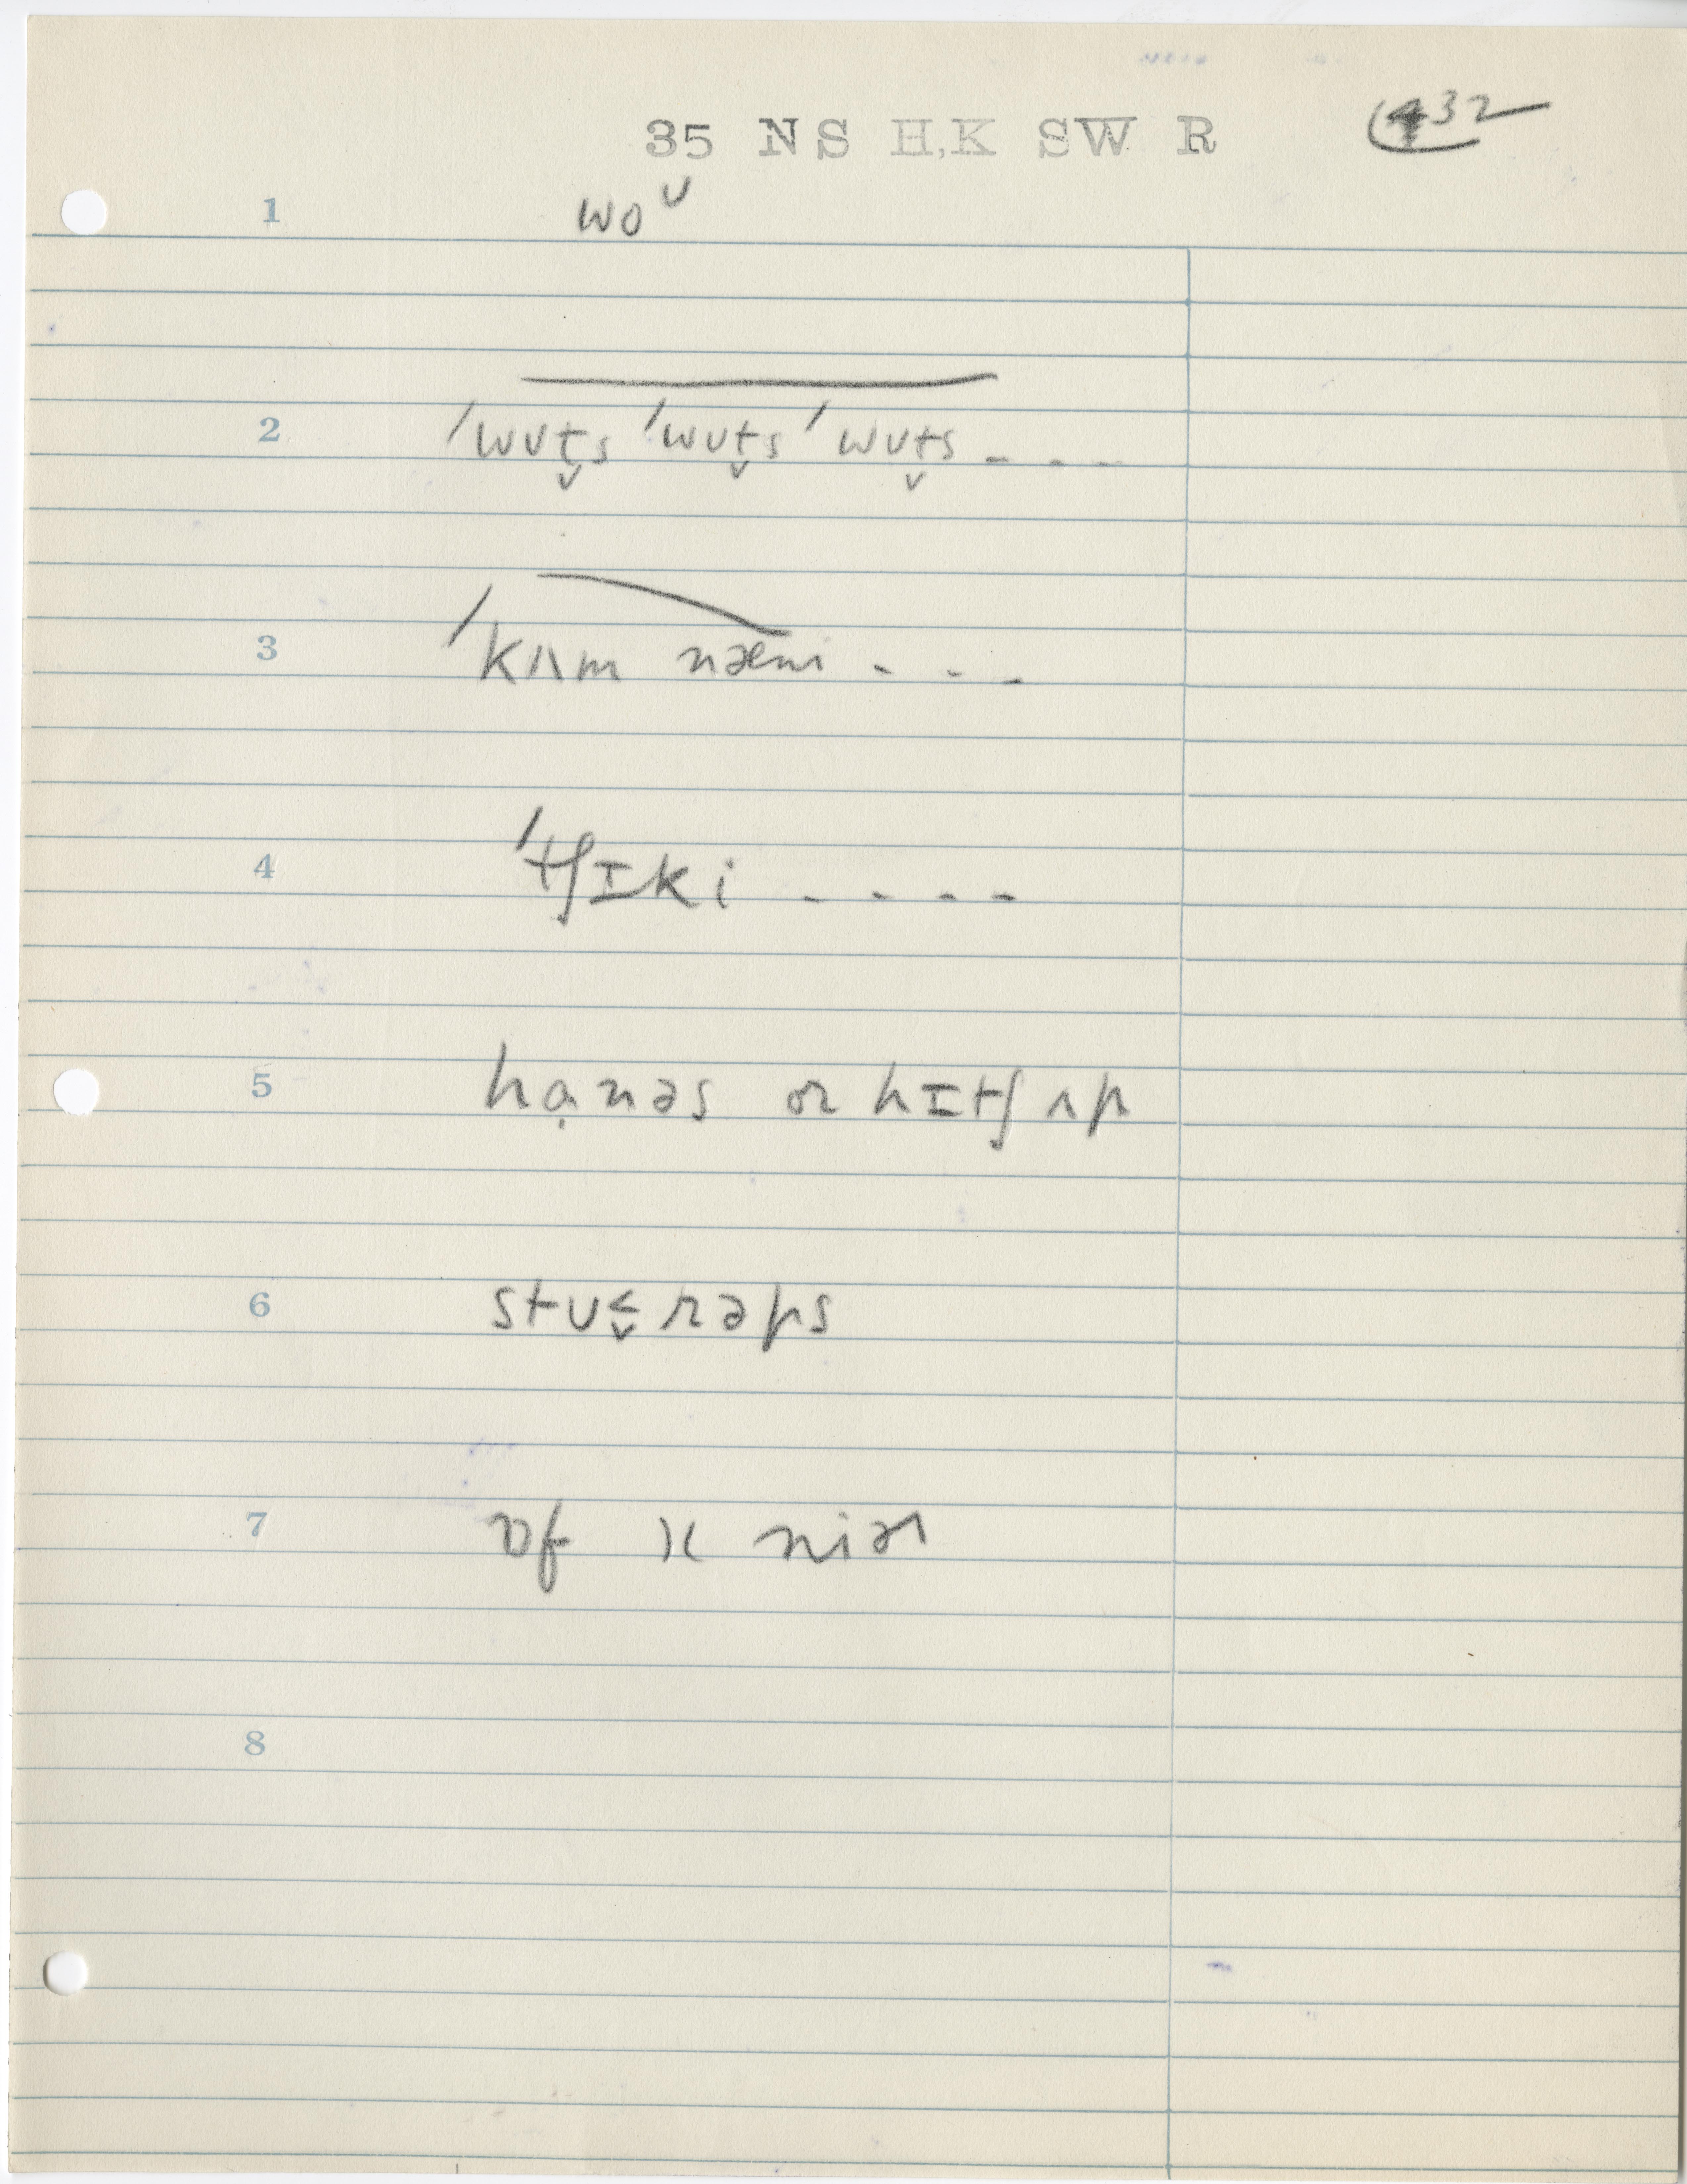 35 NS H,K SW R
432
1 woᶸ
2 ˈwʊt̬s ˈwʊt̬s ˈwʊt̬s - - -
3 ˈkʌm næni - - -
4 ˈtʃɪki - - - -
5 hạnəs or hɪtʃ ʌp
6 stɛ̬rəps
7
8